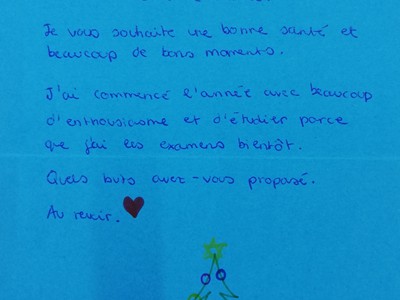 Je vous souhaite une bonne santé et
beaucoup de bons moments.
J'ai commencé l'année avec beaucoup
d'enthousiasme et d'étudier parce
que j'ai les examens bientôt.
Quels buts avez-vous proposé.
Au revoir.